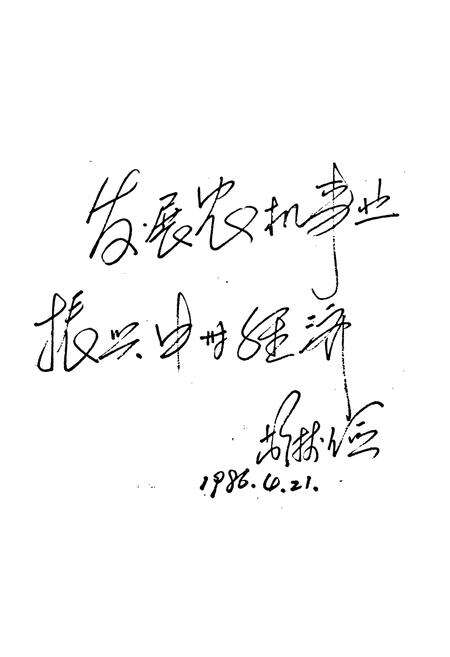 发展农机事业
振兴中州经济
胡树俭
1986.4.21.